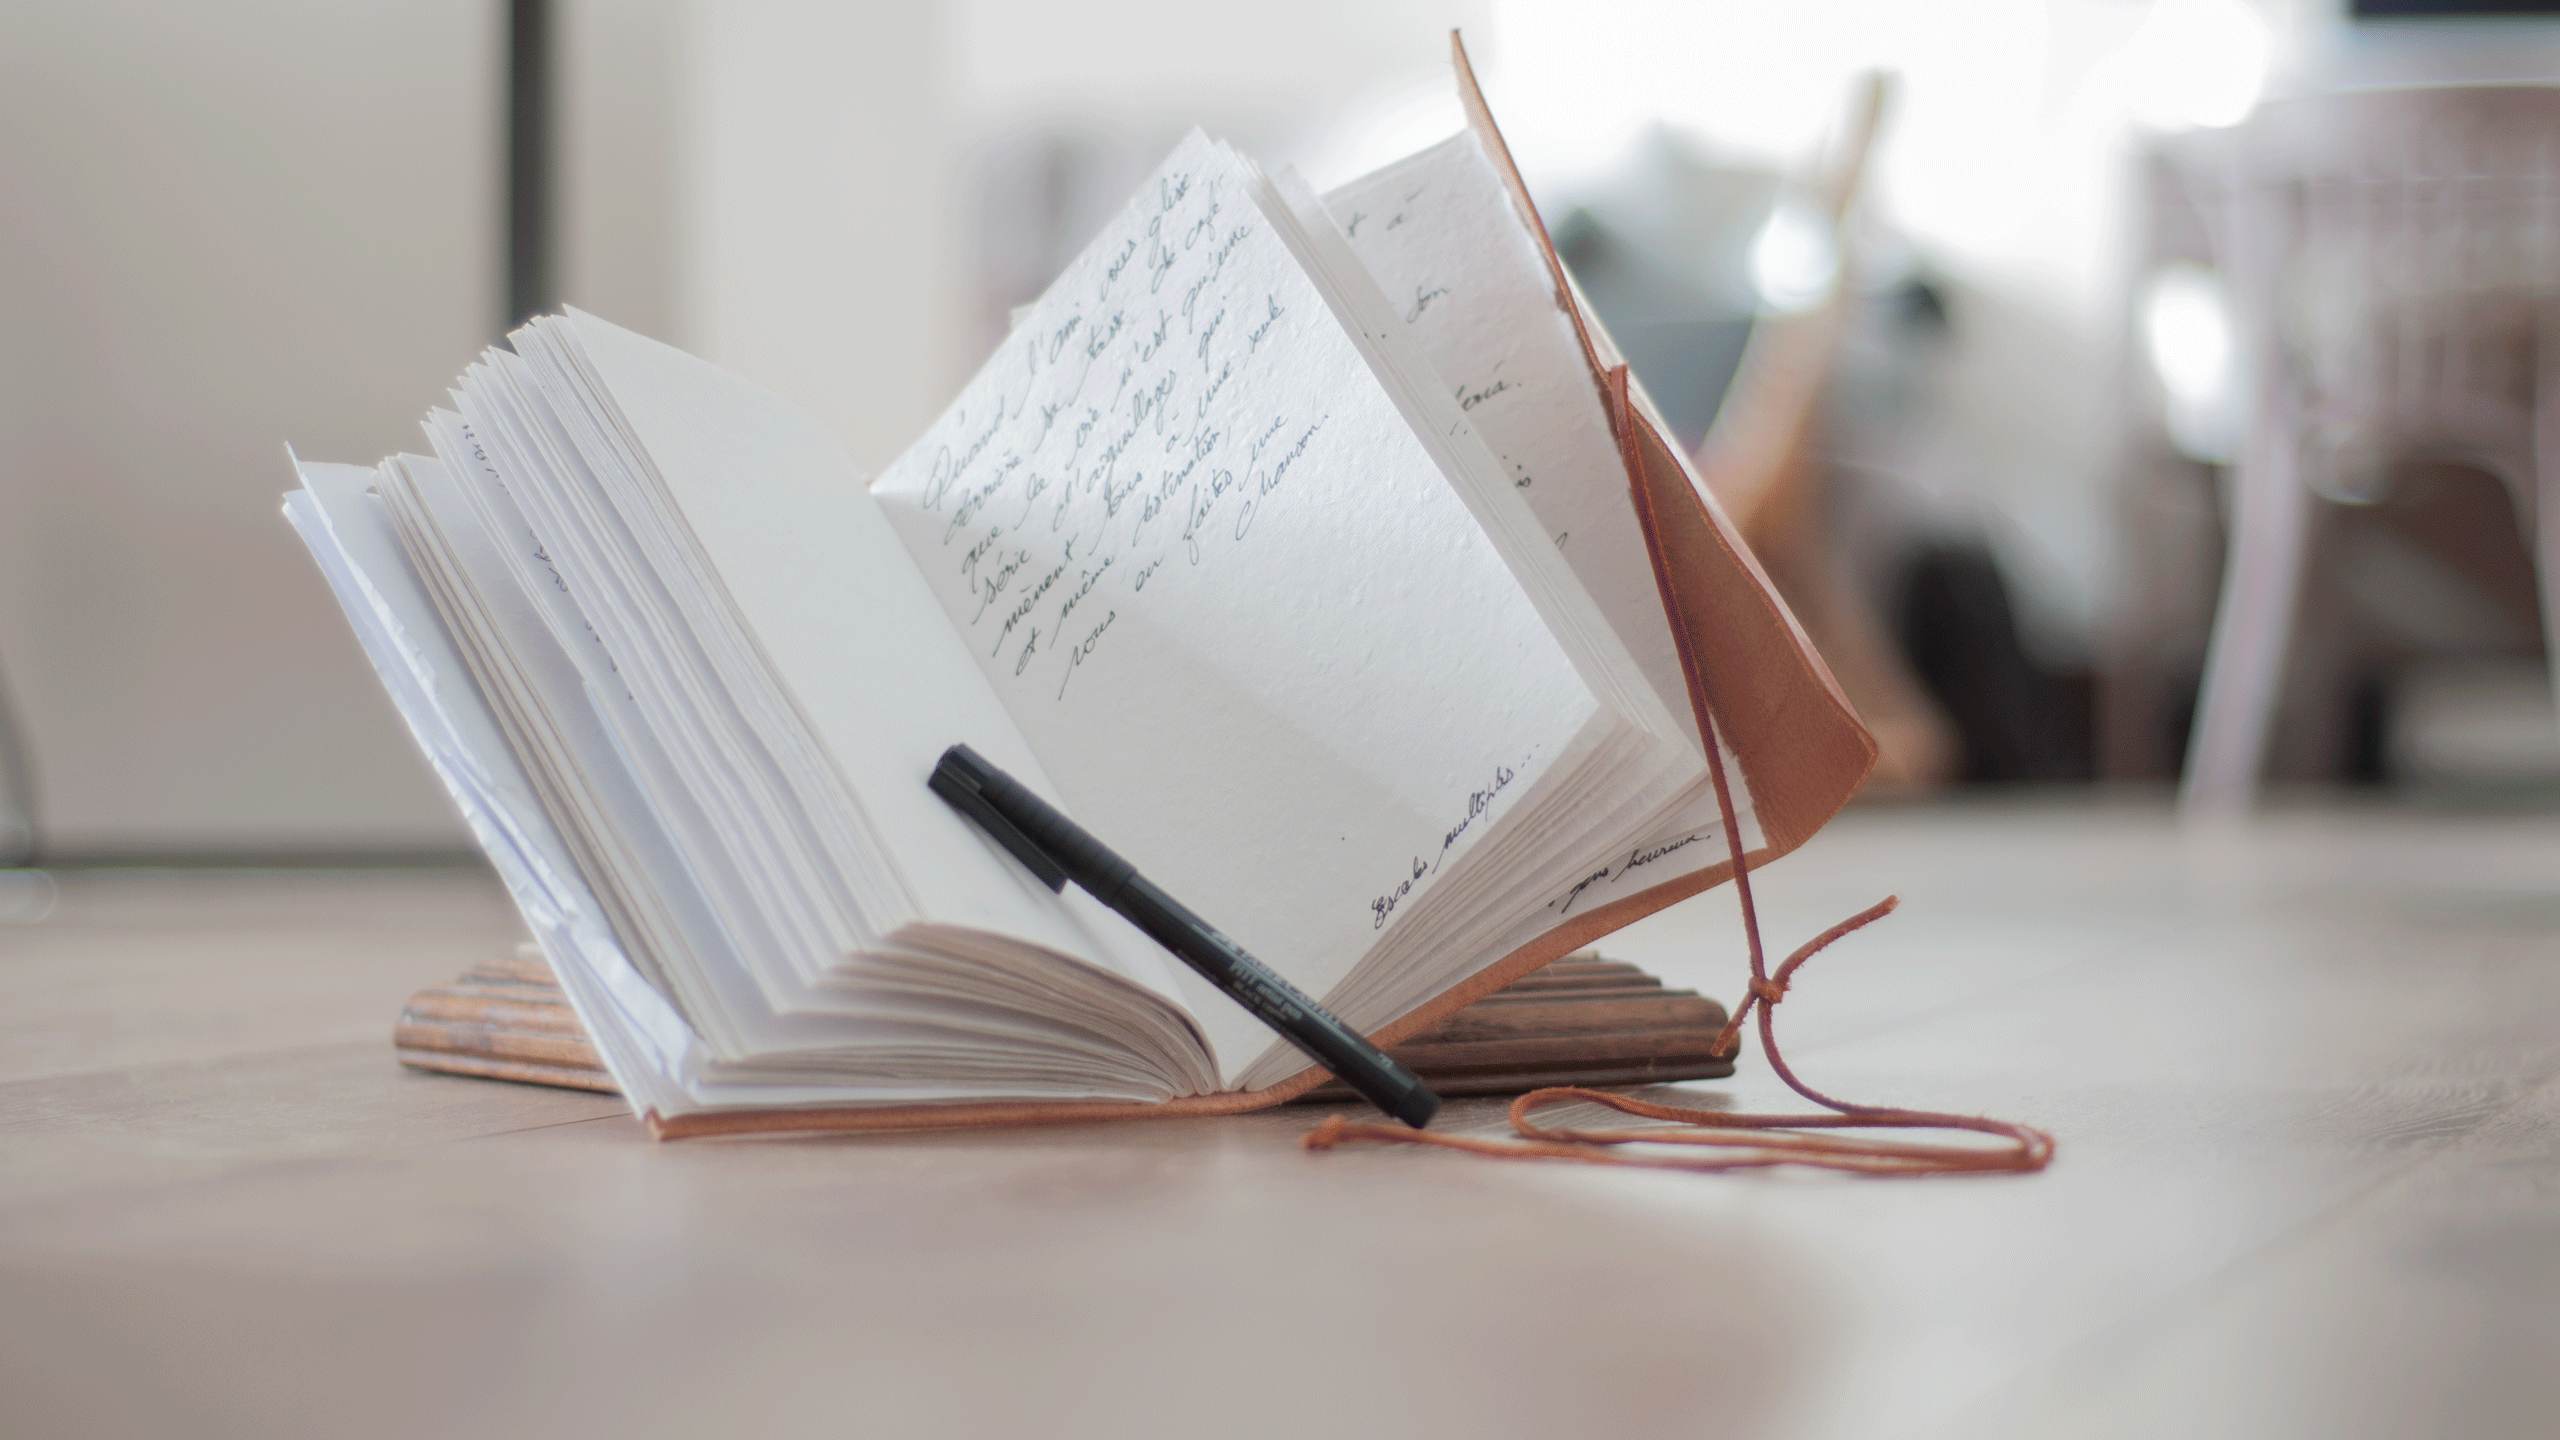 Quand l'ami vous glisse
derrière sa tasse de café
que la vie n'est qu'une
série d'aiguillages qui
mènent tous à une seule
et même destination,
vous en faites une
chanson.
Escales multiples...
à
son
is
heureux.
FABER-CASTELL
PITT artist pen